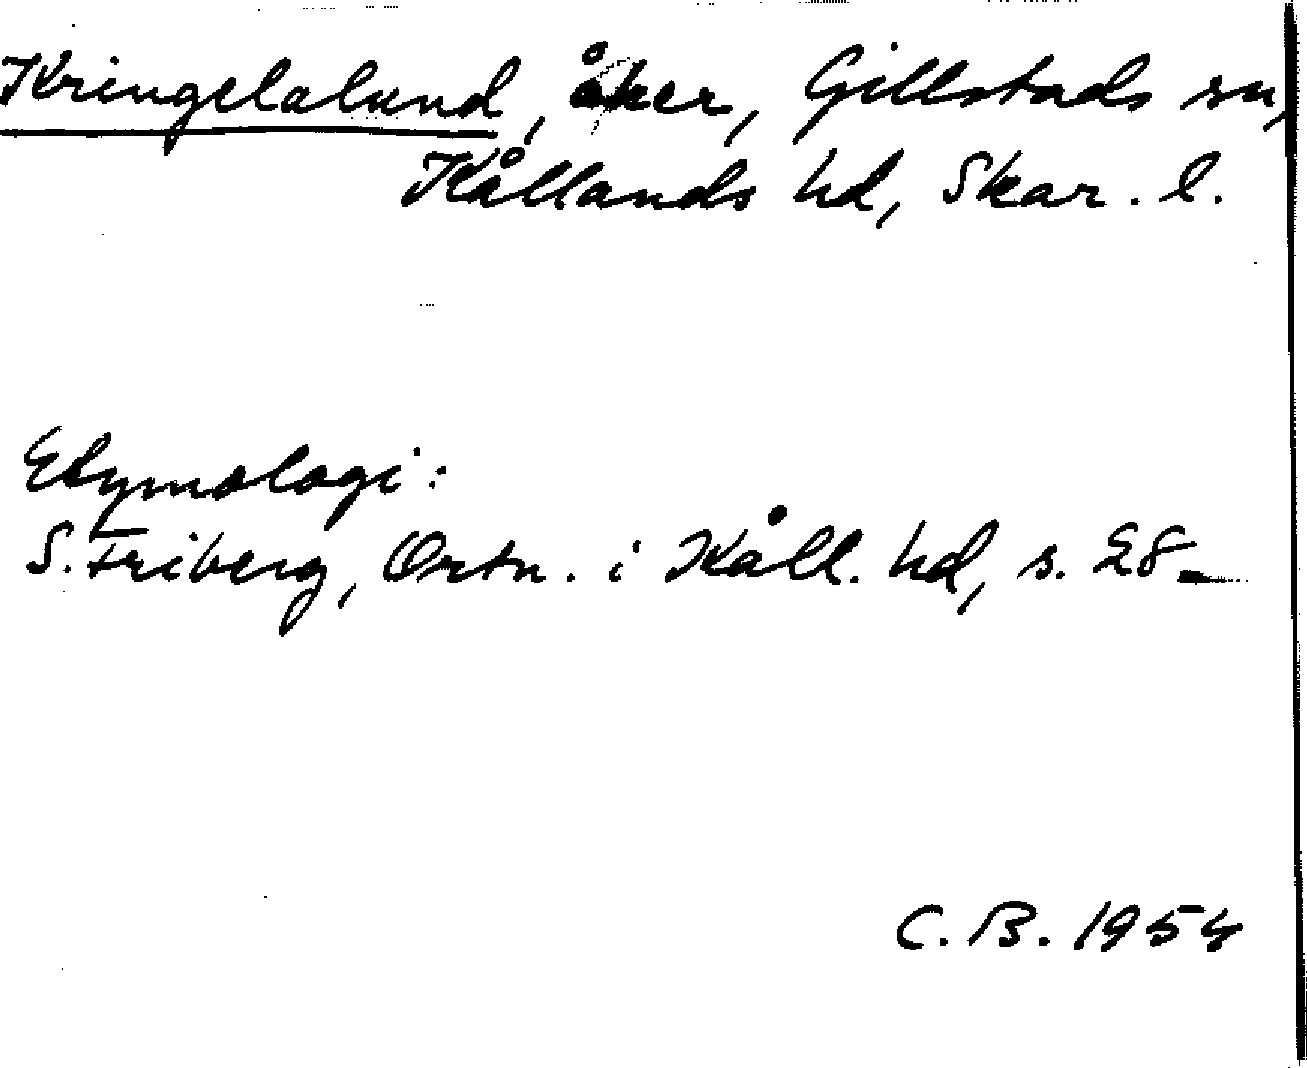 Kringelalund, åker, Gillstads sn,
Kållands hd, Skar. l.
Etymologi:
S. Friberg, Ortn. i Kåll. hd, s. 28
C. B. 1954